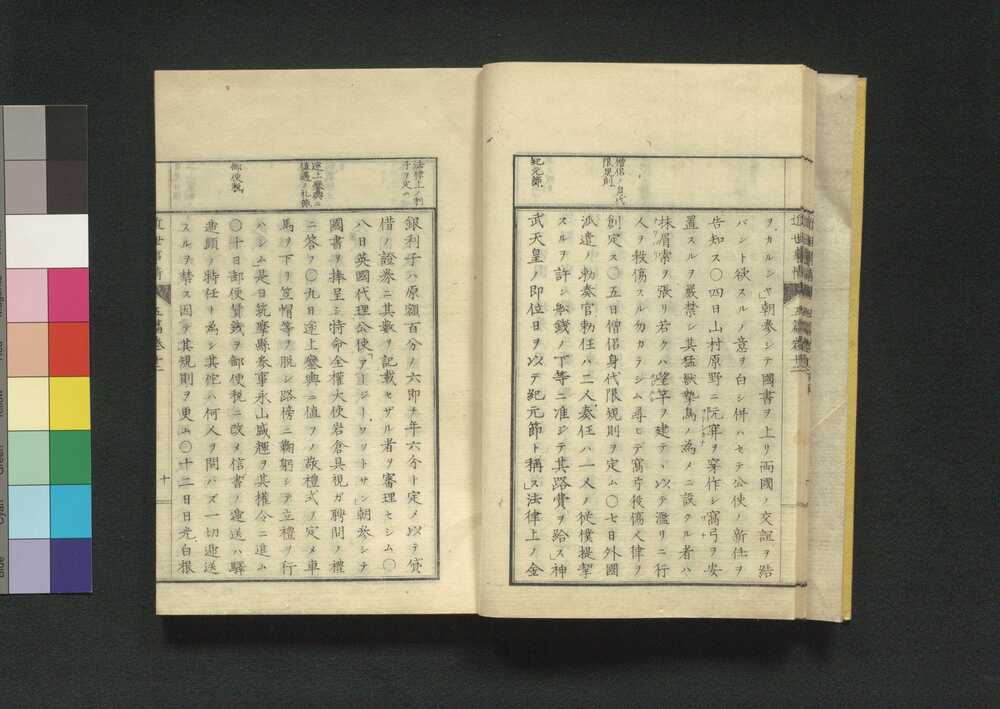 僧侶ノ身代
限規則
紀元節
ヲカルシヤ」朝參シテ國書ヲ上リ両國ノ交誼ヲ結
バント欲スルノ意ヲ白シ併ハセテ公使ノ新任ヲ
告知ス〇四日山村原野ニ阬穽ヲ穿作シ窩弓ヲ安
置スルヲ嚴禁シ其猛獸鷙鳥ノ為メニ設クル者ハ
抹眉索ヲ張リ若クハ望竿ヲ建テ丶以テ濫リニ行
人ヲ殺傷スル勿カラシム尋ヒデ窩弓殺傷人律ヲ
創定ス〇五日僧侶身代限規則ヲ定ム〇七日外國
派遣ノ勅奏官勅任ハ二人奏任ハ一人ノ從僕提挈
スルヲ許シ舩錢ノ下等ニ准ジテ其路費ヲ給ス神
武天皇ノ即位日ヲ以テ紀元節ト稱」ス法律上ノ金
法律上ノ利
子ヲ定ム
途上鑾輿ニ
値遇ノ礼節
郵便稅
銀利子ハ原額百分ノ六即チ年六分ト定メ以テ貸
借ノ證券ニ其數ヲ記載セザル者ヲ審理セシム〇
八日英國代理公使「アージーワツトサン」朝參シテ
國書ヲ捧呈シ特命全權大使岩倉具視ガ聘問ノ禮
ニ答フ〇九日途上鑾輿ニ値フノ敬禮式ヲ定メ車
馬ヲ下リ笠帽等ヲ脫シ路傍ニ鞠躬シテ立禮ヲ行
ハシム」是日筑摩縣參事永山盛輝ヲ其權令ニ進ム
〇十日郵便賃錢ヲ郵便稅ニ改メ信書ノ遞送ハ驛
遞頭ノ特任ト為シ其佗ハ何人ヲ問ハズ一切遞送
スルヲ禁ス因テ其規則ヲ更ム〇十二日日光白根
十